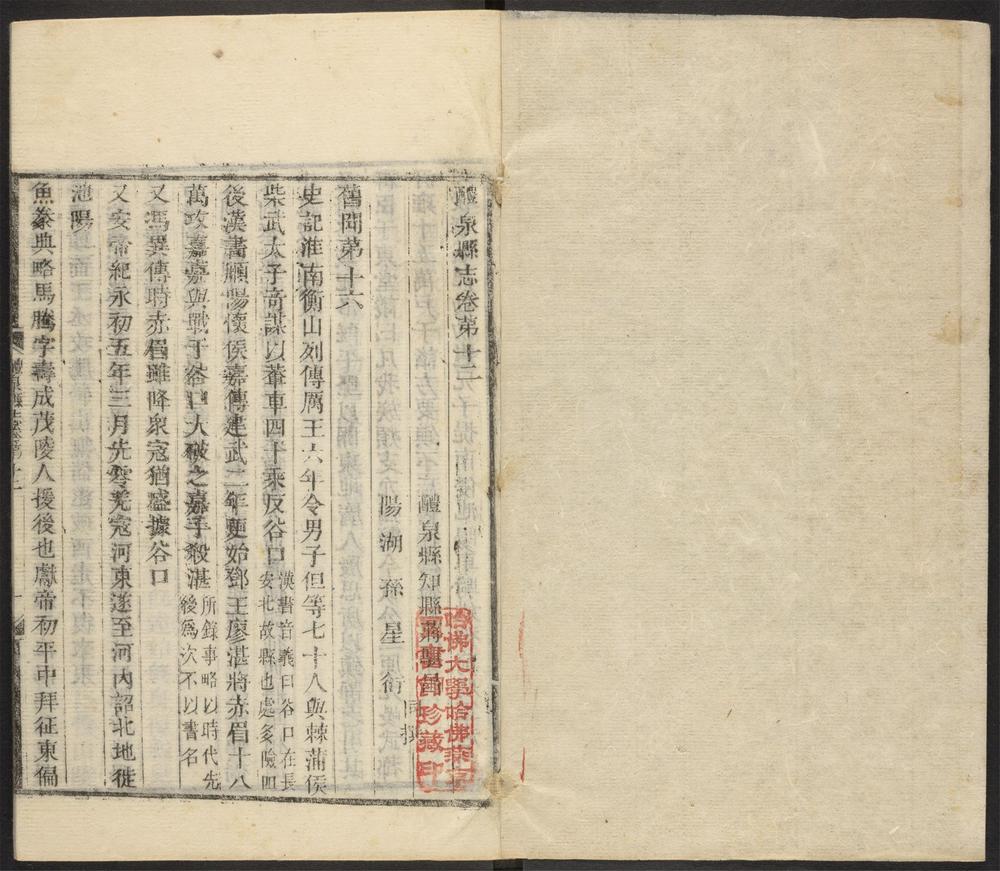 醴泉縣志卷第十二
醴泉縣知縣蔣騏昌
陽湖孫星衍同撰
舊聞第十六
史記淮南衡山列傳厲王六年令男子但等七十八與棘蒲侯
柴武太子奇謀以輂車四十乘反谷口
漢書音義曰谷口在長
安北故縣也處多險阻
後漢書順陽懷侯嘉傳建武二年更始鄧王廖湛將赤眉十八
萬攻嘉嘉與戰于谷口大破之嘉手殺湛
所錄事略以時代先
後爲次不以書名
又馮異傳時赤眉雖降衆寇猶盛據谷口
又安帝紀永初五年三月先零羌寇河東遂至河內詔北地徙
池陽
魚豢典略馬騰字壽成茂陵人援後也獻帝初平中拜征東偏
醴泉縣志卷第十二
一
哈佛大學哈佛燕京
圖書館珍藏印